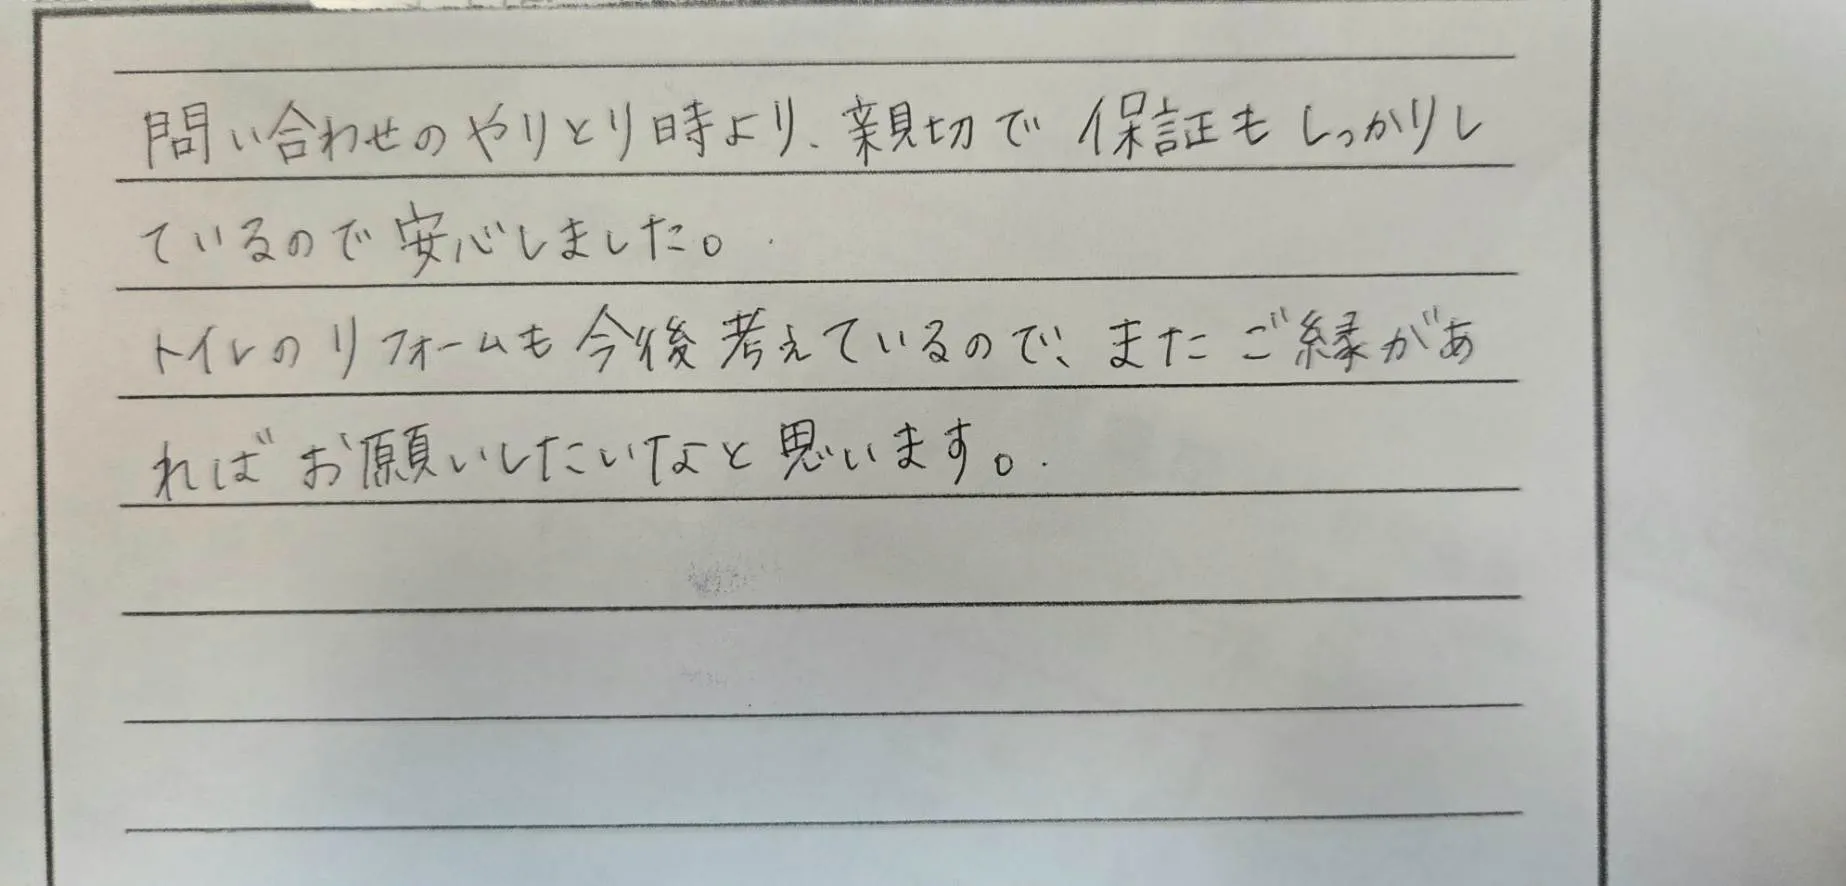 問い合わせのやりとり時より、親切で保証もしっかりし
ているので安心しました。
トイレのリフォームも今後考えているので、またご縁があ
ればお願いしたいなと思います。